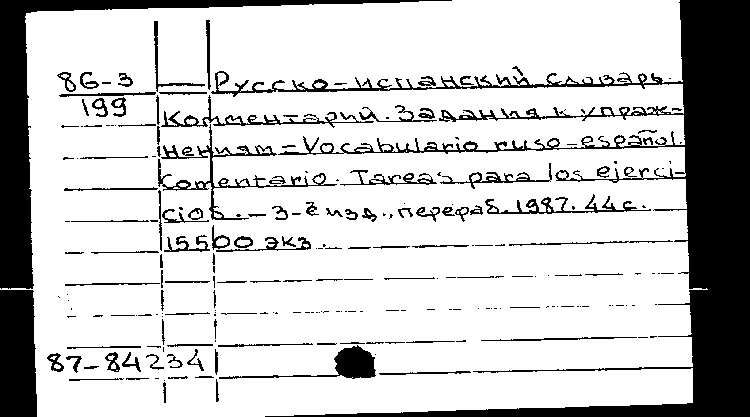 86-3 Русско-испанский словарь.
199 Комментарий. Задания к упраж-
нениям = Vocabulario ruso-español.
Comentario. Tareas para los ejerci-
cios. - 3-е изд., перераб. 1987. 44 с.
15500 экз.
87-84234